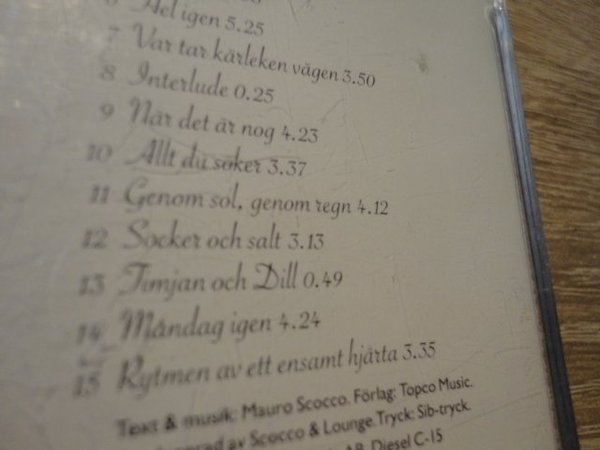 Hel igen 5.25
7 Var tar kärleken vägen 3.50
8 Interlude 0.25
9 När det är nog 4.23
10 Allt du söker 3.37
11 Genom sol, genom regn 4.12
12 Socker och salt 3.13
13 Timjan och Dill 0.49
14 Måndag igen 4.24
15 Rytmen av ett ensamt hjärta 3.35
Text & musik: Mauro Scocco. Förlag: Topco Music.
av Scocco & Lounge. Tryck: Sib-tryck.
AB. Diesel C-15